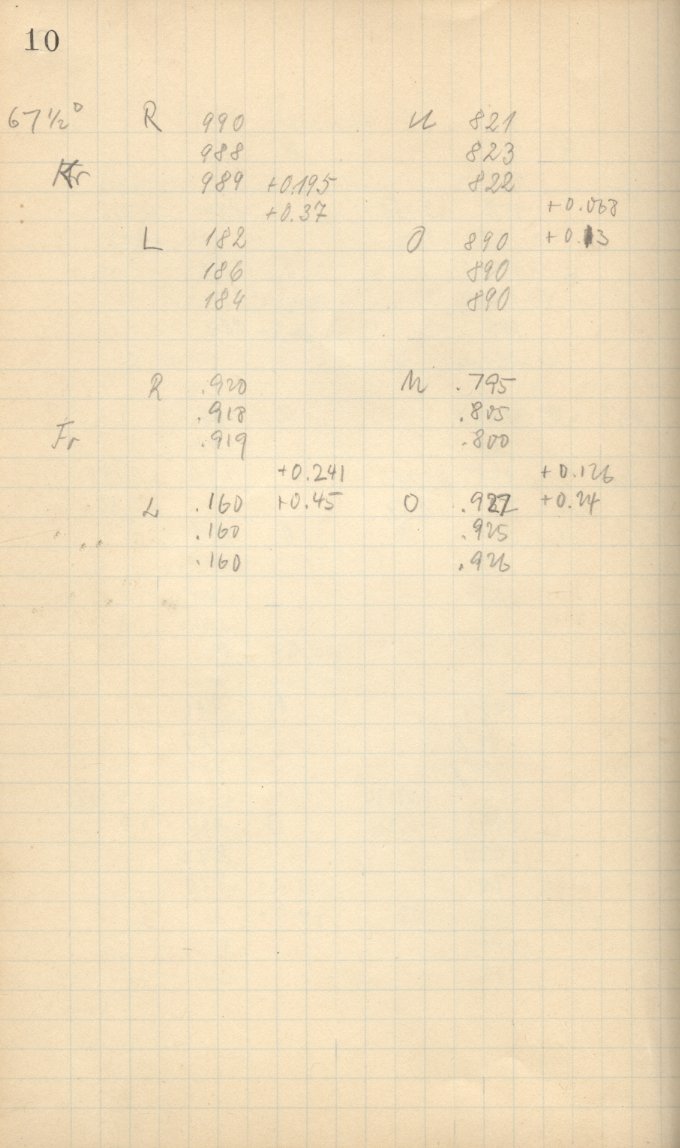 10
67 1/2° R 990 U 821
988 823
Kr 989 +0.195 822
+0.37 +0.068
L 182 O 890 +0.13
186 890
184 890
R .920 U .795
.918 .805
Fr .919 .800
+0.241 +0.126
L .160 +0.45 O .927 +0.24
.160 .925
.160 .926